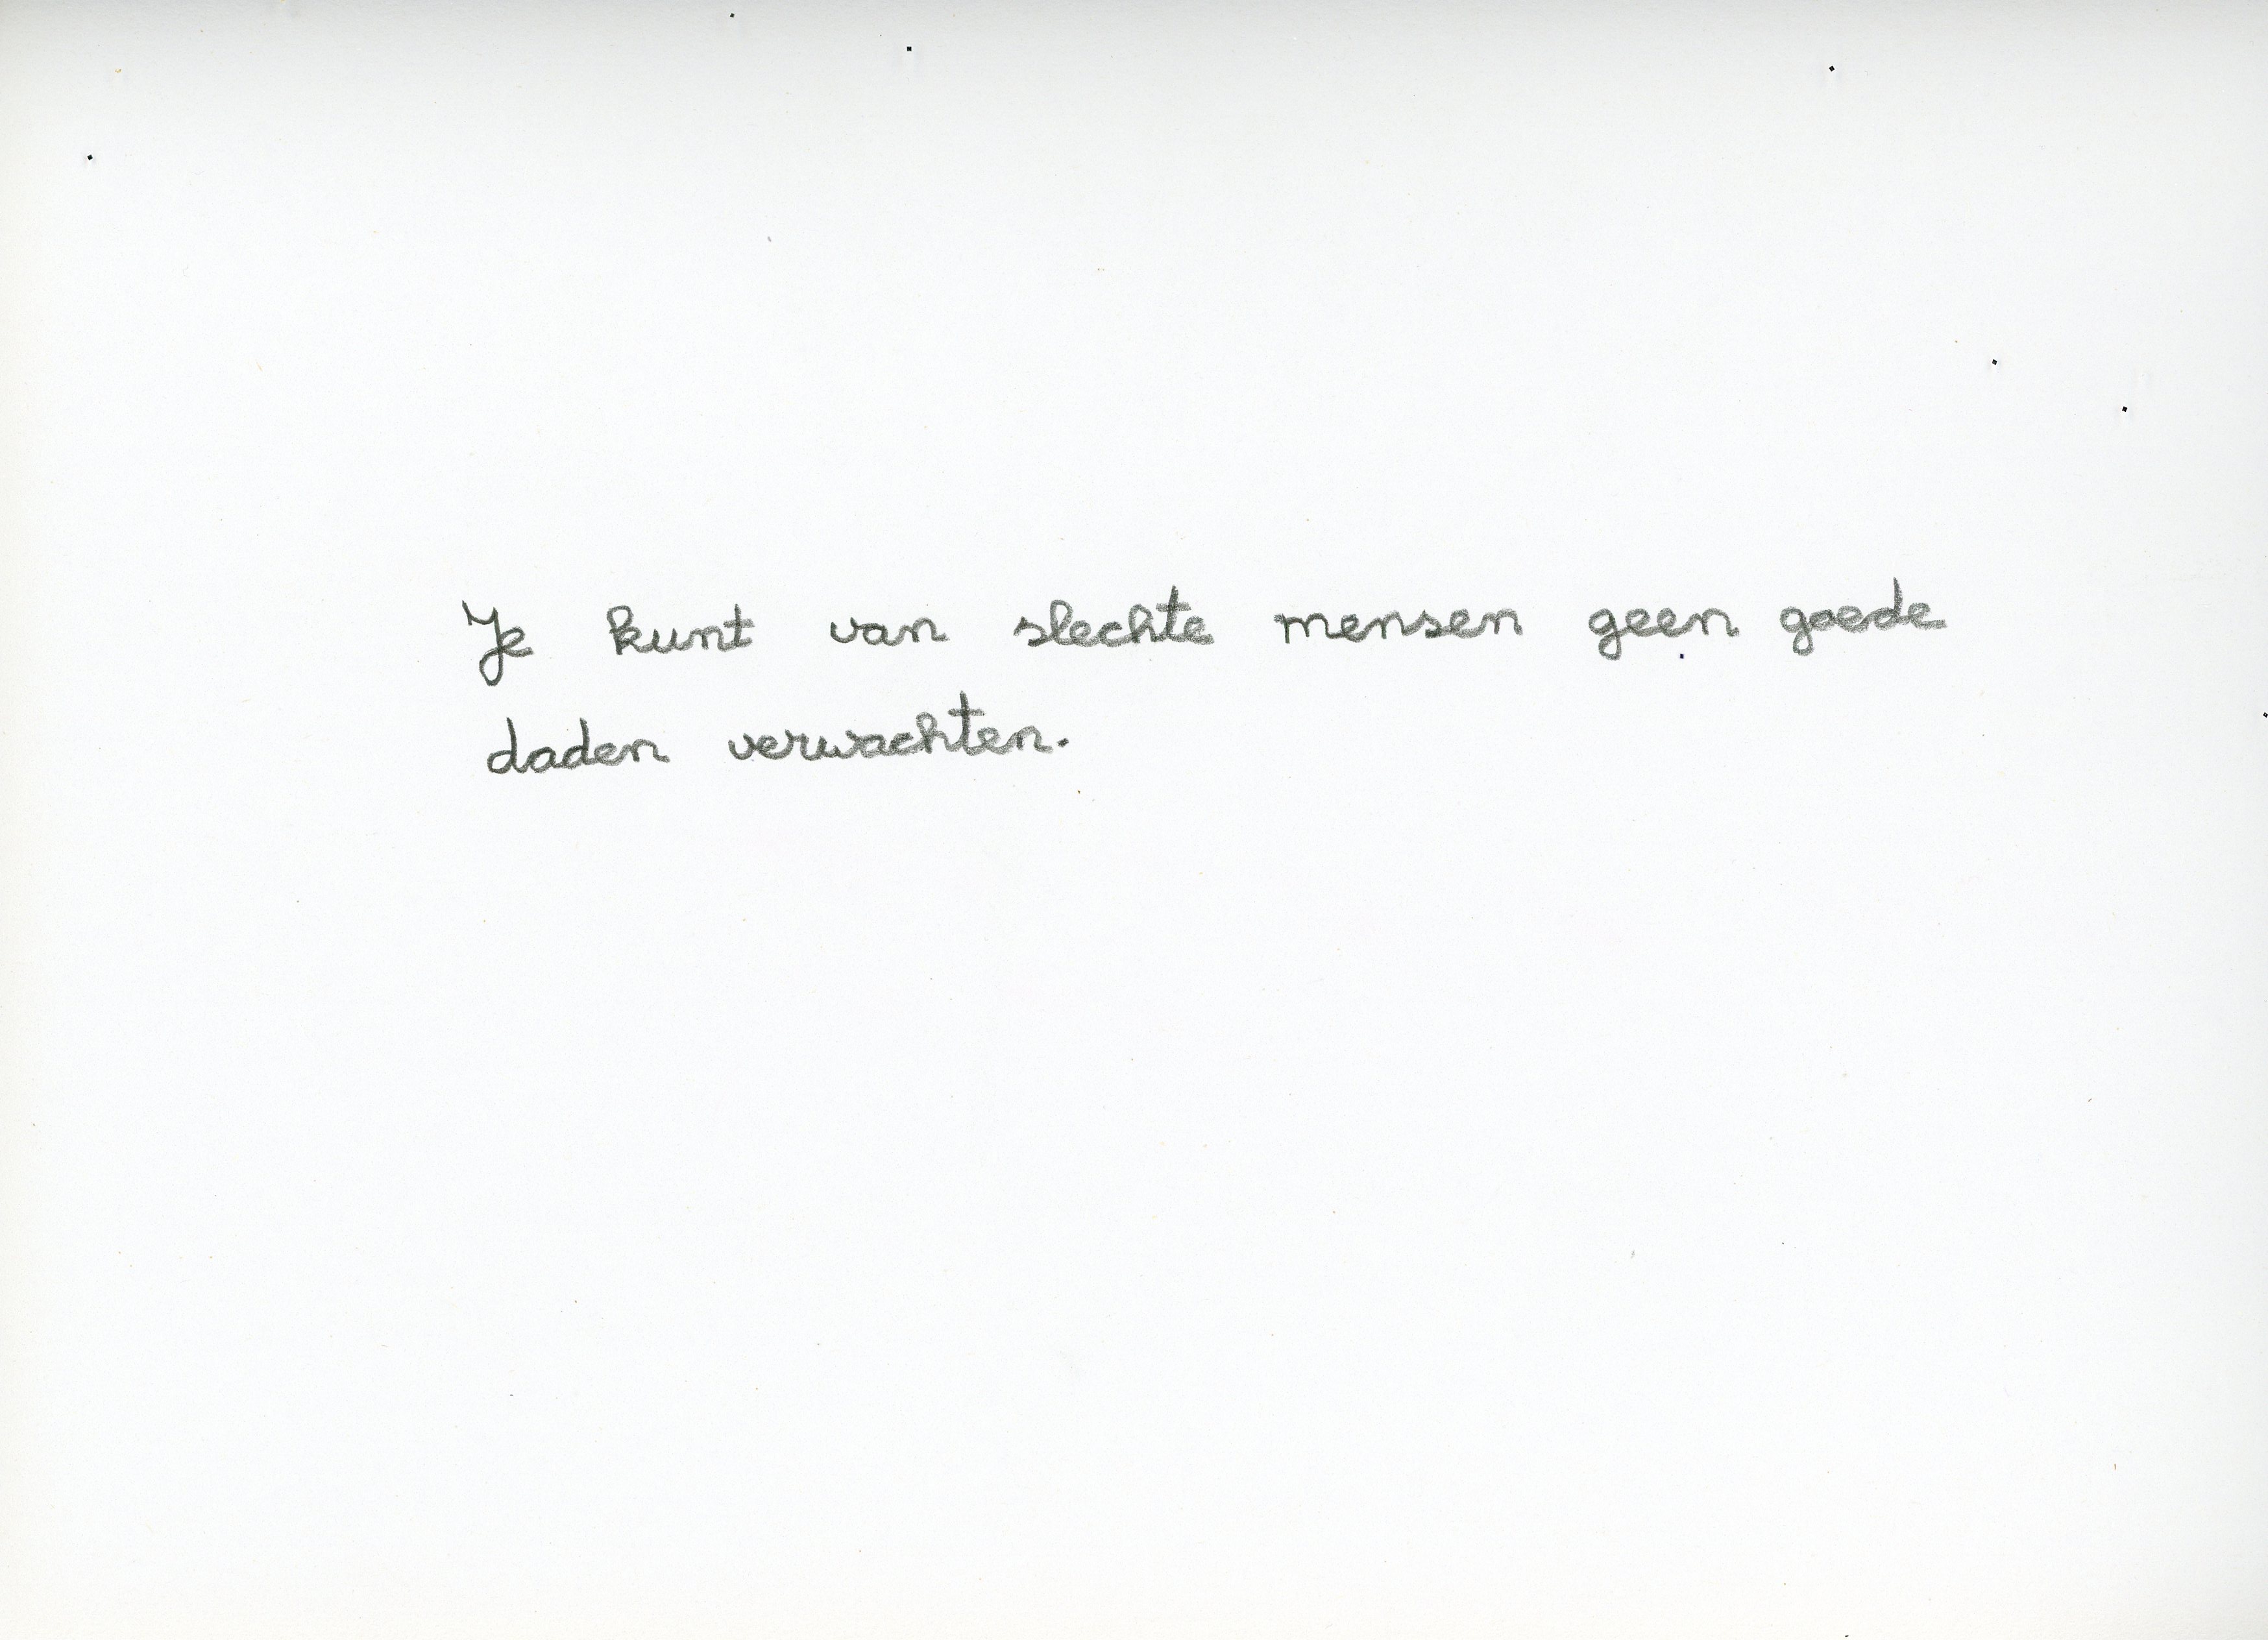 Je kunt van slechte mensen geen goede
daden verwachten.